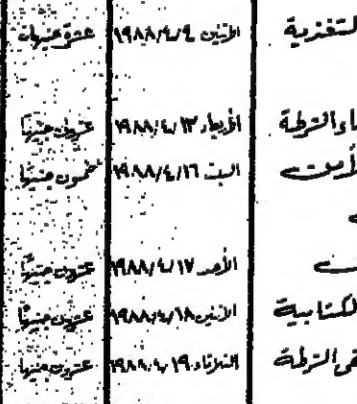 لتغذية الاثنين ١٩٨٨/٤/٤ عشرة جنيهات
الأربعاء ١٩٨٨/٤/١٣ عشرون جنيهًا
السبت ١٩٨٨/٤/١٦ خمسون جنيهًا
الأحد ١٩٨٨/٤/١٧ عشرون جنيهًا
لكتابية الاثنين ١٩٨٨/٤/١٨ عشرون جنيهًا
الثلاثاء ١٩٨٨/٤/١٩ عشرون جنيهًا